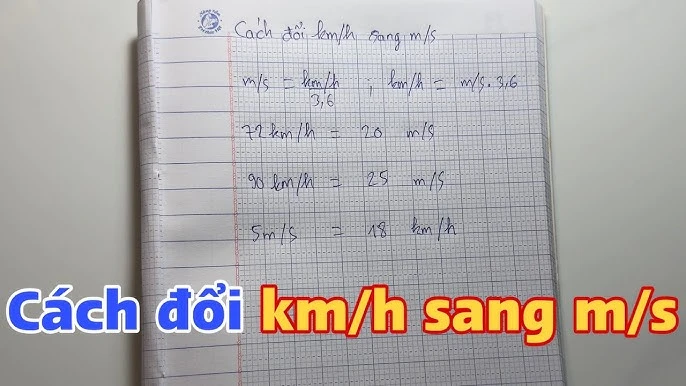 Cách đổi km/h sang m/s
m/s = km/h / 3,6 ; km/h = m/s . 3,6
72 km/h = 20 m/s
90 km/h = 25 m/s
5m/s = 18 km/h
Cách đổi km/h sang m/s